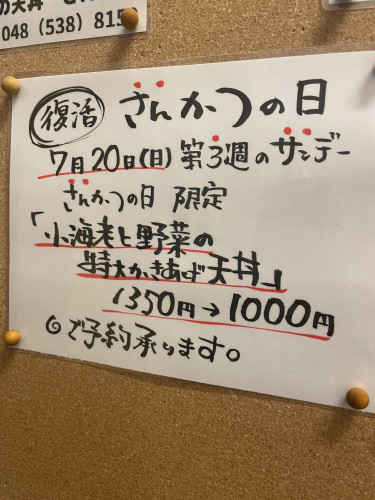 の天丼
048 (538) 815
復活 さんかつの日
7月20日(日) 第3週のサンデー
さんかつの日 限定
「小海老と野菜の
特大かきあげ天丼」
1350円→1000円
◎ご予約承ります。